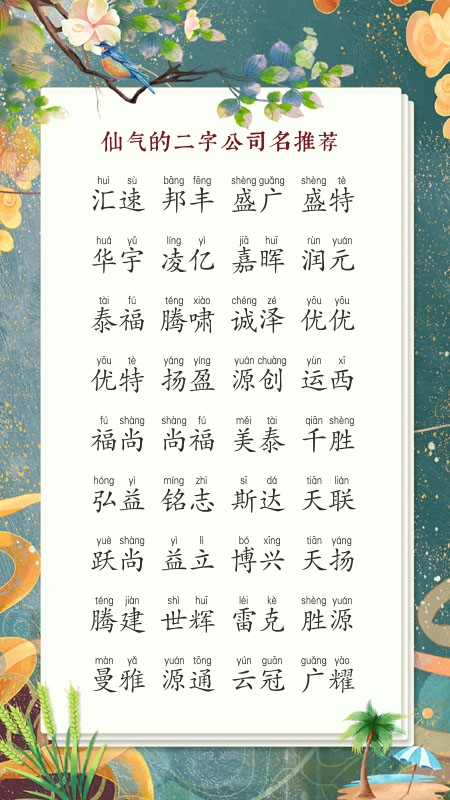 仙气的二字公司名推荐
huì sù bāng fēng shèng guǎng shèng tè
汇速 邦丰 盛广 盛特
huá yǔ líng yì jiā huī rùn yuán
华宇 凌亿 嘉晖 润元
tài fú téng xiào chéng zé yōu yōu
泰福 腾啸 诚泽 优优
yōu tè yáng yíng yuán chuàng yùn xī
优特 扬盈 源创 运西
fú shàng shàng fú měi tài qiān shèng
福尚 尚福 美泰 千胜
hóng yì míng zhì sī dá tiān lián
弘益 铭志 斯达 天联
yuè shàng yì lì bó xīng tiān yáng
跃尚 益立 博兴 天扬
téng jiàn shì huī léi kè shèng yuán
腾建 世辉 雷克 胜源
màn yǎ yuán tōng yún guān guǎng yào
曼雅 源通 云冠 广耀